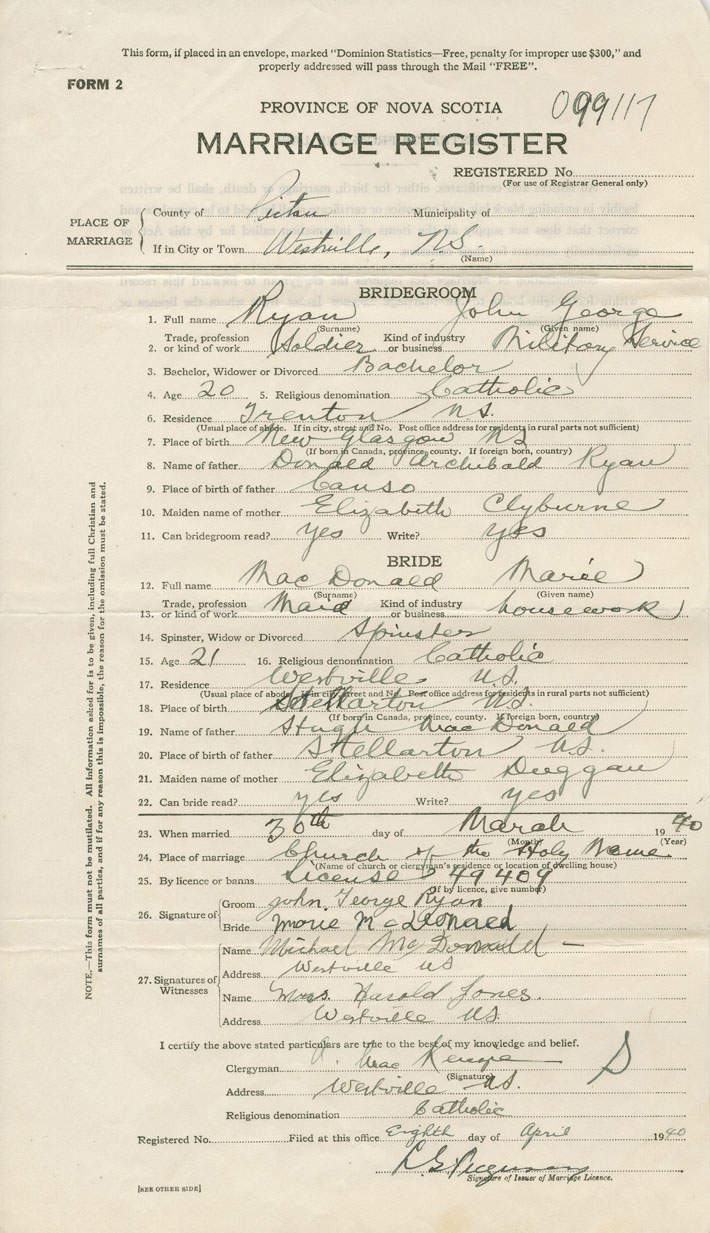 This form, if placed in an envelope, marked "Dominion Statistics—Free, penalty for improper use $300," and
properly addressed will pass through the Mail "FREE".
FORM 2
PROVINCE OF NOVA SCOTIA
099117
MARRIAGE REGISTER
REGISTERED No.
(For use of Registrar General only)
PLACE OF MARRIAGE
County of Pictou Municipality of
If in City or Town Westville, N.S.
(Name)
BRIDEGROOM
1. Full name Ryan John George
(Surname) (Given name)
2. Trade, profession or kind of work Soldier Kind of industry or business Military Service
3. Bachelor, Widower or Divorced Bachelor
4. Age 20 5. Religious denomination Catholic
6. Residence Trenton N.S.
(Usual place of abode. If in city, street and No. Post office address for residents in rural parts not sufficient)
7. Place of birth New Glasgow NS
(If born in Canada, province, county. If foreign born, country)
8. Name of father Donald Archibald Ryan
9. Place of birth of father Canso
10. Maiden name of mother Elizabeth Clyburne
11. Can bridegroom read? Yes Write? yes
BRIDE
12. Full name Mac Donald Marie
(Surname) (Given name)
13. Trade, profession or kind of work Maid Kind of industry or business housework
14. Spinster, Widow or Divorced Spinster
15. Age 21 16. Religious denomination Catholic
17. Residence Westville N.S.
(Usual place of abode. If in city, street and No. Post office address for residents in rural parts not sufficient)
18. Place of birth Stellarton N.S.
(If born in Canada, province, county. If foreign born, country)
19. Name of father Hugh Mac Donald
20. Place of birth of father Stellarton N.S.
21. Maiden name of mother Elizabeth Duggan
22. Can bride read? yes Write? yes
23. When married 30th day of March 1940
(Month) (Year)
24. Place of marriage Church of the Holy Name
(Name of church or clergyman's residence or location of dwelling house)
25. By licence or banns License 49409
(If by licence, give number)
26. Signature of
Groom John George Ryan
Bride Marie McDonald
27. Signatures of Witnesses
Name Michael McDonald
Address Westville NS
Name Mrs. Harold Jones.
Address Westville NS.
I certify the above stated particulars are true to the best of my knowledge and belief.
Clergyman Mac
(Signature)
S
Address Westville NS.
Religious denomination Catholic
Registered No. Filed at this office Eighth day of April 1940
Signature of Issuer of Marriage Licence.
[SEE OTHER SIDE]
NOTE.—This form must not be mutilated. All information asked for is to be given, including full Christian and
surnames of all parties, and if for any reason this is impossible, the reason for the omission must be stated.